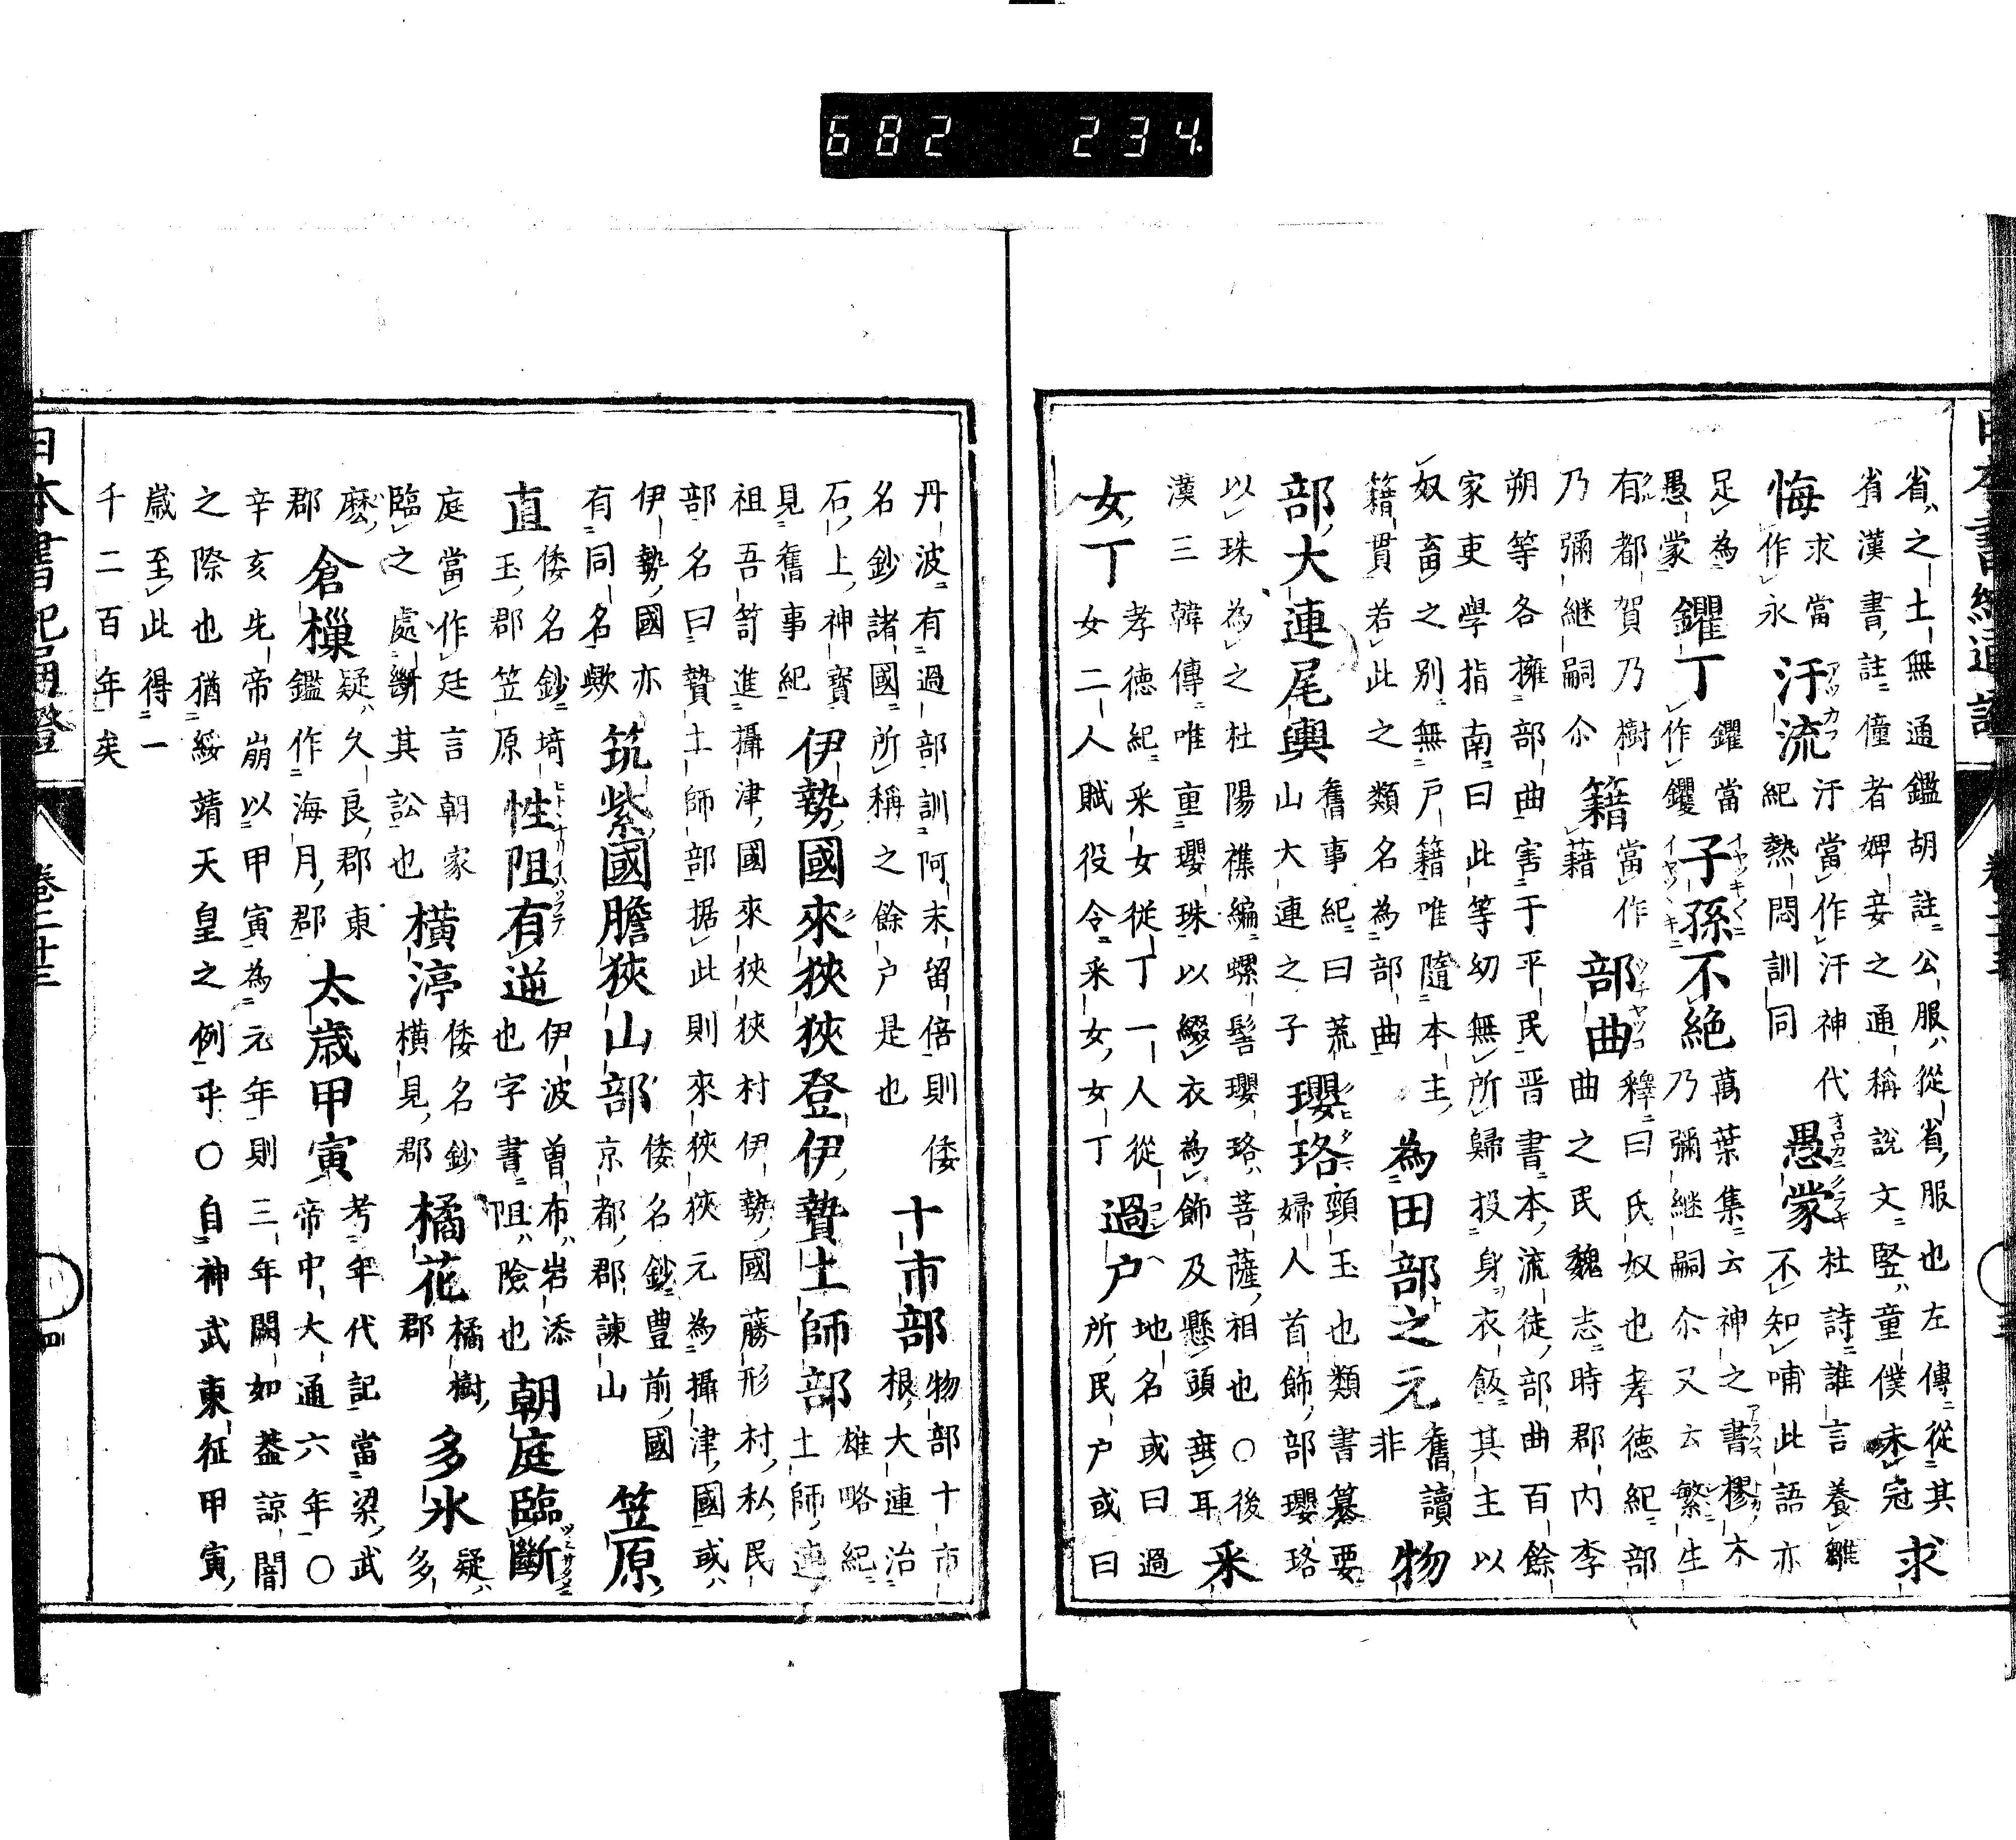 682 234.
省之土無通鑑胡註公服從省服也左傳從其
省漢書註僮者婢妾之通稱說文豎童僕未冠
求
悔
求當
作永
汙流
汙當作汗神代
紀熱悶訓同
愚蒙
杜詩誰言養雛
不知哺此語亦
足為
愚蒙
鑺丁
鑺當
作钁
子孫不絕
萬葉集云神之書樛木
乃彌繼嗣尒又云繁生
有都賀乃樹
乃彌繼嗣尒
籍
當作
藉
部曲
釋曰氏奴也孝德紀部
曲之民魏志時郡内李
朔等各擁部曲害于平民晋書本流徒部曲百餘
家吏學指南曰此等幼無所歸投身衣飯其主以
奴畜之別無戶籍唯隨本主
籍貫若此之類名為部曲
為田部之元
舊讀
非
物
部大連尾輿
舊事紀曰荒
山大連之子
瓔珞
頸玉也類書纂要
婦人首飾部瓔珞
以珠為之杜陽襍編螺髻瓔珞菩薩相也〇後
漢三韓傳唯重瓔珠以綴衣為飾及懸頭垂耳
釆
女丁
孝德紀釆女從丁一人從
女二人賦役令釆女女丁
過戶
地名或曰過
所民戶或曰
丹波有過部訓阿末留倍則倭
名鈔諸國所稱之餘戶是也
十市部
物部十市
根大連治
石上神寶
見舊事紀
伊勢國來狹狹登伊贄土師部
雄略紀
土師連
祖吾笥進攝津國來狹狹村伊勢國藤形村私民
部名曰贄土師部据此則來狹狹元為攝津國或
伊勢國亦
有同名歟
筑紫國膽狹山部
倭名鈔豊前國
京都郡諫山
笠原
直
倭名鈔埼
玉郡笠原
性阻有逆
伊波曾布岩添
也字書阻險也
朝庭臨斷
庭當作廷言朝家
臨之處斷其訟也
橫渟
倭名鈔
橫見郡
橘花
橘樹
郡
多氷
疑
多
麼
郡
倉樔
疑久良郡東
鑑作海月郡
太歲甲寅
考年代記當梁武
帝中大通六年〇
辛亥先帝崩以甲寅為元年則三年闕如蓋諒闇
之際也猶綏靖天皇之例乎〇自神武東征甲寅
歲至此得一
千二百年矣
日本書紀通證
卷二十三
四